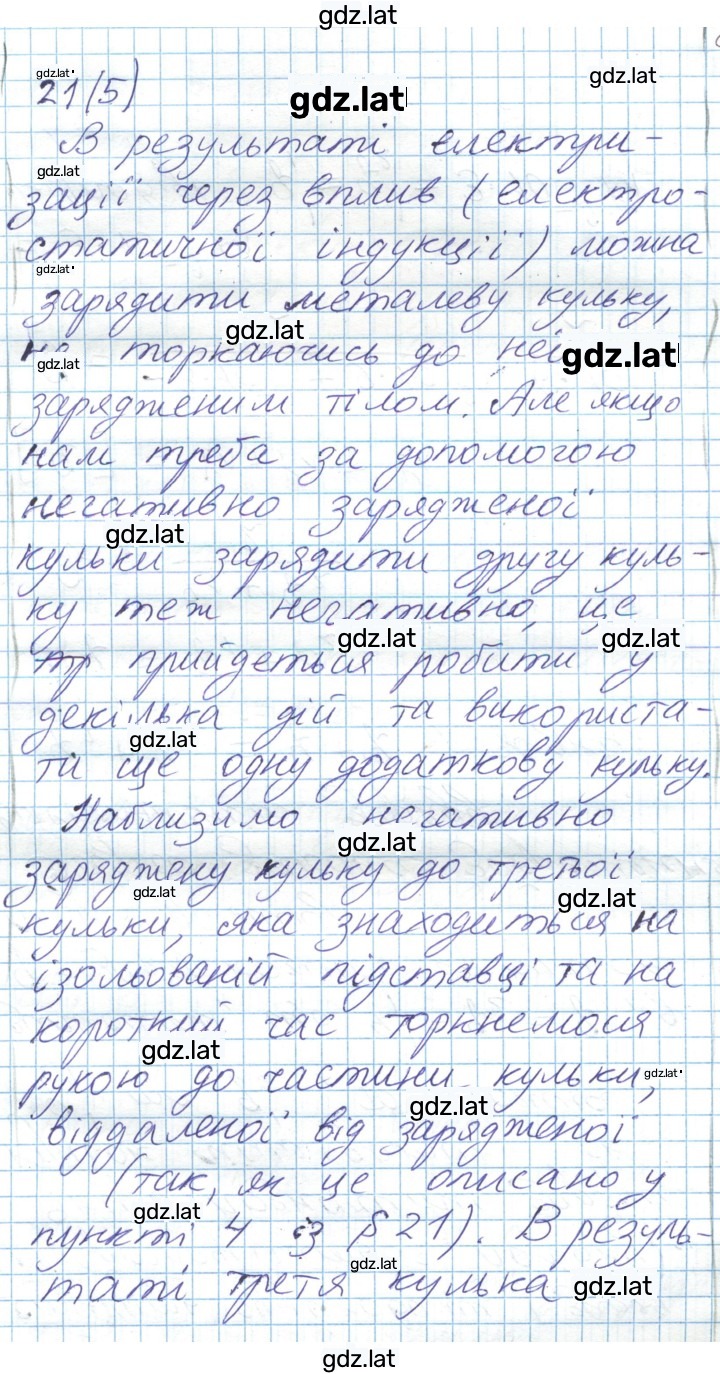 gdz.lat
gdz.lat
21(5)
gdz.lat
gdz.lat
В результаті електри-
gdz.lat
зації через вплив (електро-
статичної індукції) можна
gdz.lat
зарядити металеву кульку,
gdz.lat
не торкаючись до неї
gdz.lat
gdz.lat
зарядженим тілом. Але якщо
нам треба за допомогою
негативно зарядженої
gdz.lat
кульки зарядити другу куль-
ку теж негативно, це
gdz.lat
gdz.lat
прийдеться робити у
декілька дій та використа-
gdz.lat
ти ще одну додаткову кульку.
Наблизимо негативно
gdz.lat
заряджену кульку до третьої
gdz.lat
gdz.lat
кульки, яка знаходиться на
ізольованій підставці та на
короткий час торкнемося
gdz.lat
рукою до частини кульки,
gdz.lat
gdz.lat
віддаленої від зарядженої
(так, як це описано у
gdz.lat
пункті 4 з §21). В резуль-
gdz.lat
таті третя кулька
gdz.lat
gdz.lat